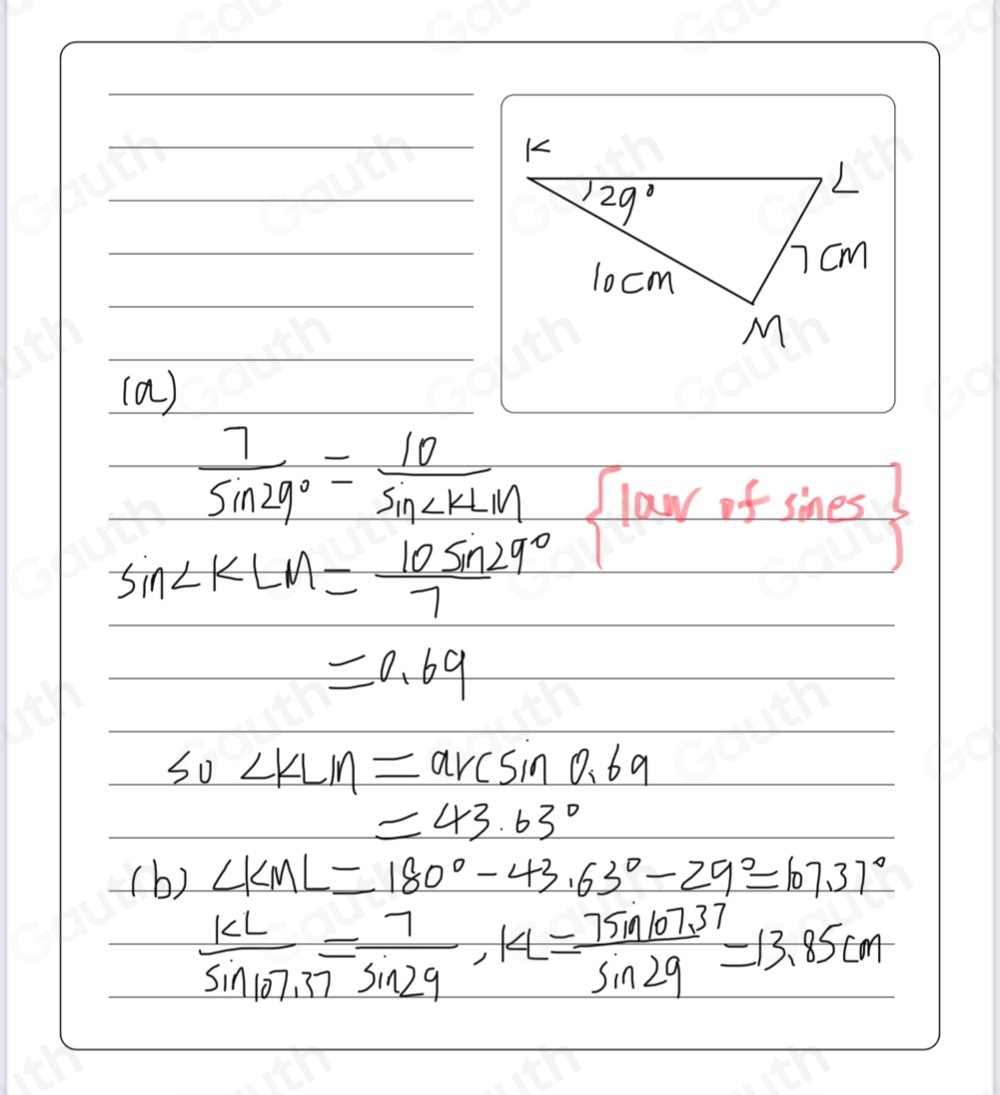 K
L
29°
10cm
7cm
M
(a)
7/sin29° = 10/sin∠KLM {law of sines}
sin∠KLM = 10sin29°/7
=0.69
so ∠KLM = arcsin 0.69
= 43.63°
(b) ∠KML = 180° - 43.63° - 29° = 107.37°
KL/sin107.37 = 7/sin29 , KL = 7sin107.37/sin29 = 13.85cm
Gauth